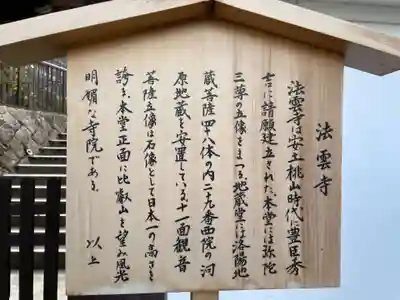 法雲寺
法雲寺は安土桃山時代に豊臣秀
吉に請願建立された、本堂には弥陀
三尊の立像をまつる地蔵堂には洛陽地
蔵菩薩四十八体の内二十九番西院の河
原地蔵を安置している十一面観音
菩薩立像は石像として日本一の高さを
誇る、本堂正面に比叡山を望み風光
明媚な寺院である。 以上